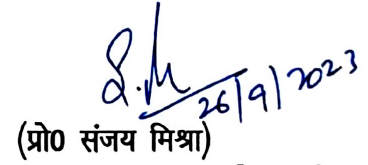 26/9/2023
(प्रो0 संजय मिश्रा)